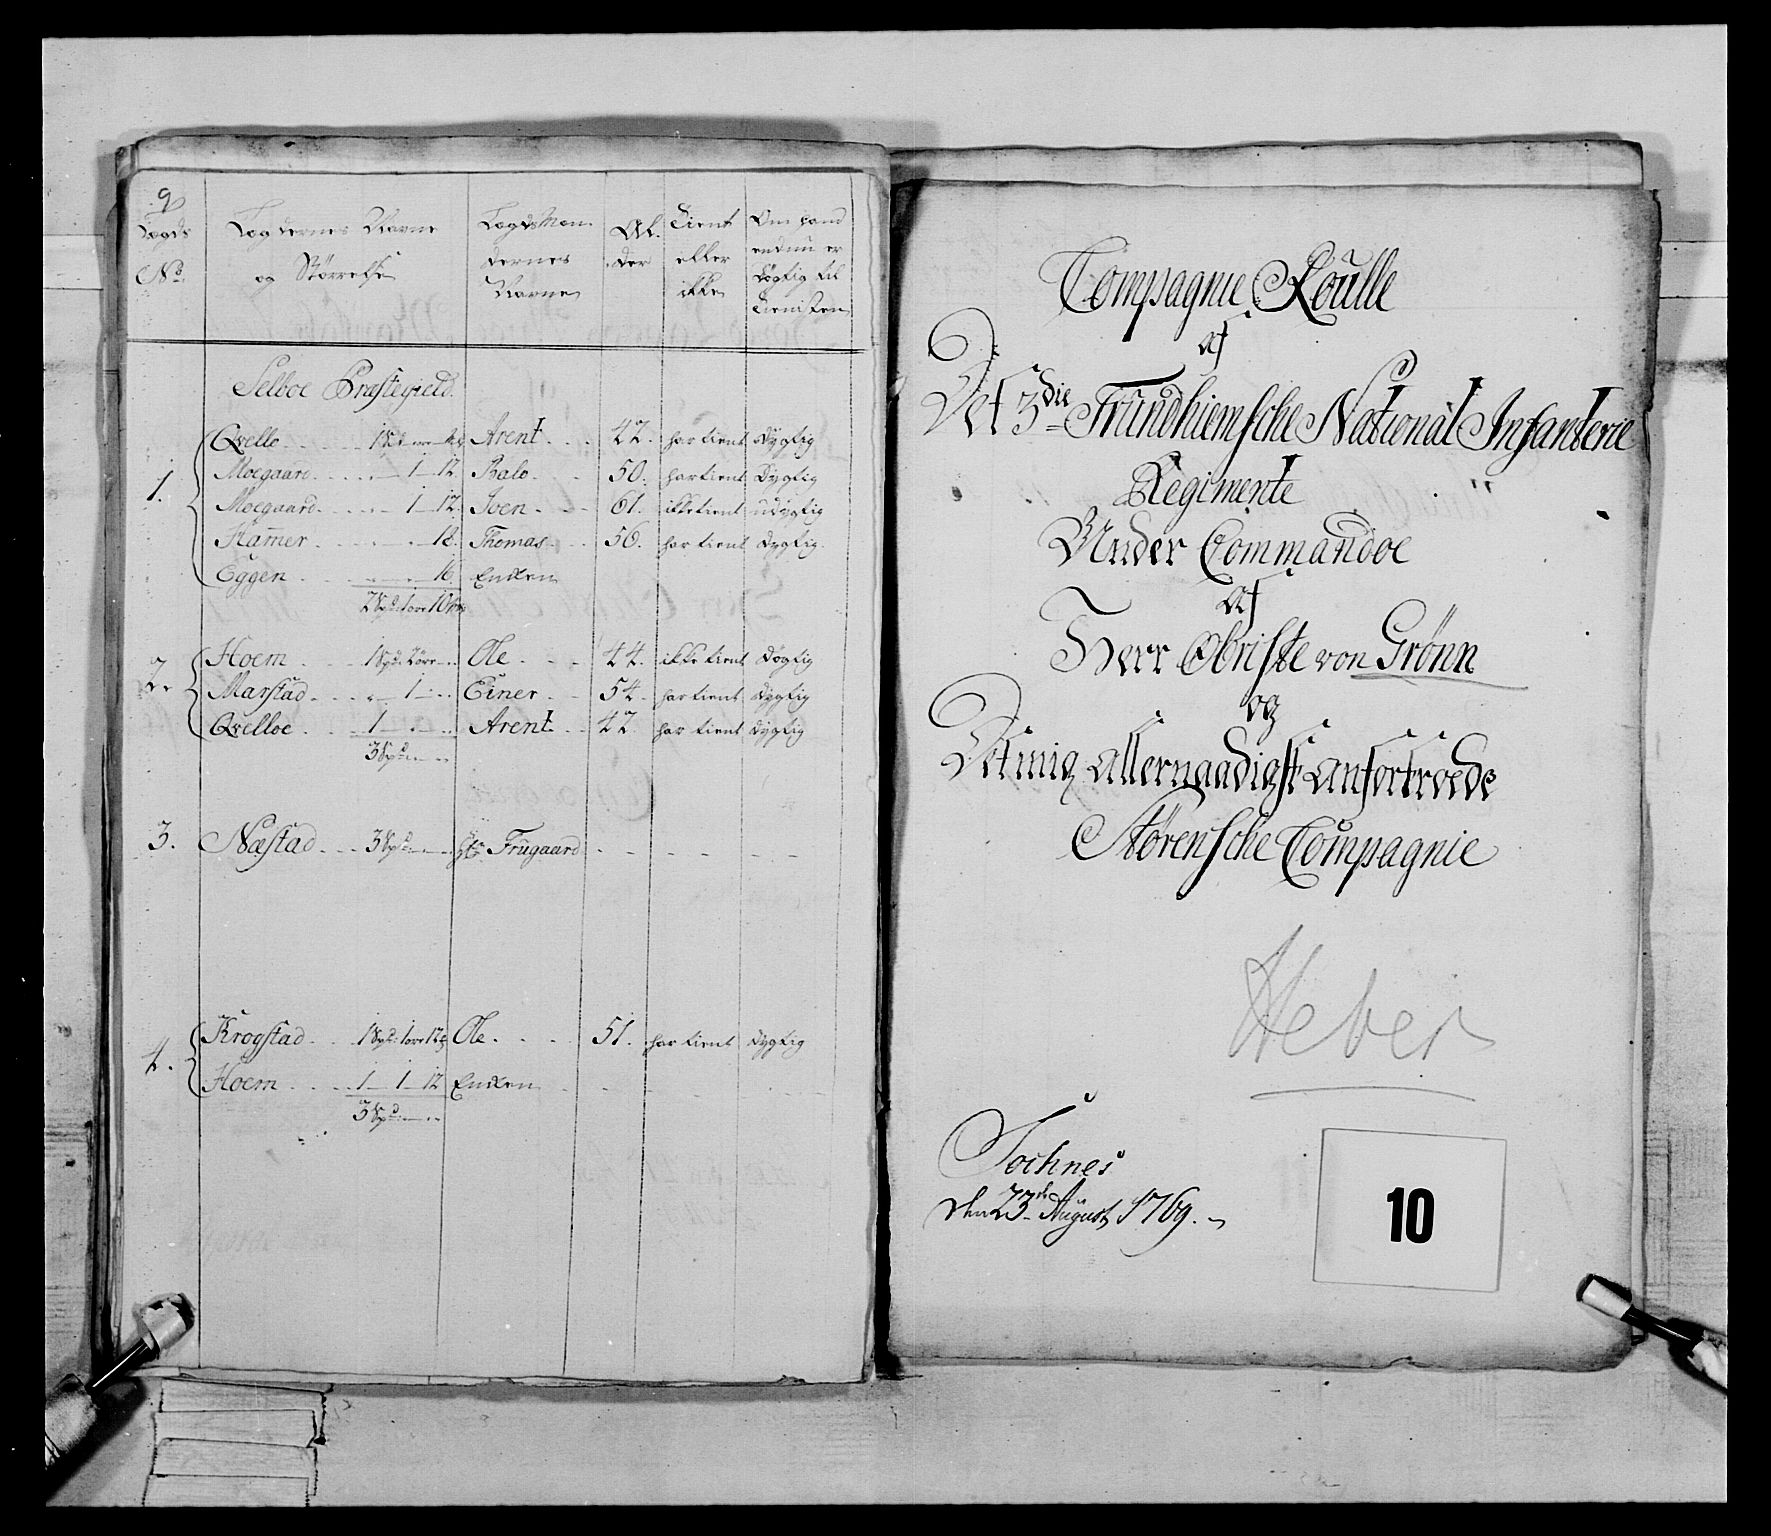 9
Lægds No.
Lægdernes Navne og Størrelse
Lægdsmændernes Navne
Alder
Tient eller ikke
Om hand endnu er dygtig til Tienisten
Selboe Præstegield
1. Qvelloe
Arent 42. har tient dygtig
Moegaard 1 12 Balo 50. har tient dygtig
Moegaard 1 12 Joen 61. ikke tient udygtig
Hamer 18. Thomas 56. har tient dygtig
Eggen 16. Enken
2. Hoem Ole 44. ikke tient dygtig
Marstad 1 Einer 54. har tient dygtig
Qvelloe 1 Arent 42 har tient dygtig
3 Spd
3. Næstad 3 Spd Frugaard
4. Krogstad 1 Spd 1 ort 12 s Ole 51. har tient dygtig
Hoem 1 1 12 Enken
3 Spd
Compagnie Roulle
af
Det 3die Trundhiemsche National Infanterie
Regimente
Under Commandoe
af
Herr Obriste von Grønn
og
Det mig allernaadigst anfortroede
Størensche Compagnie
Heber
Sochnes
den 23de August 1769.
10